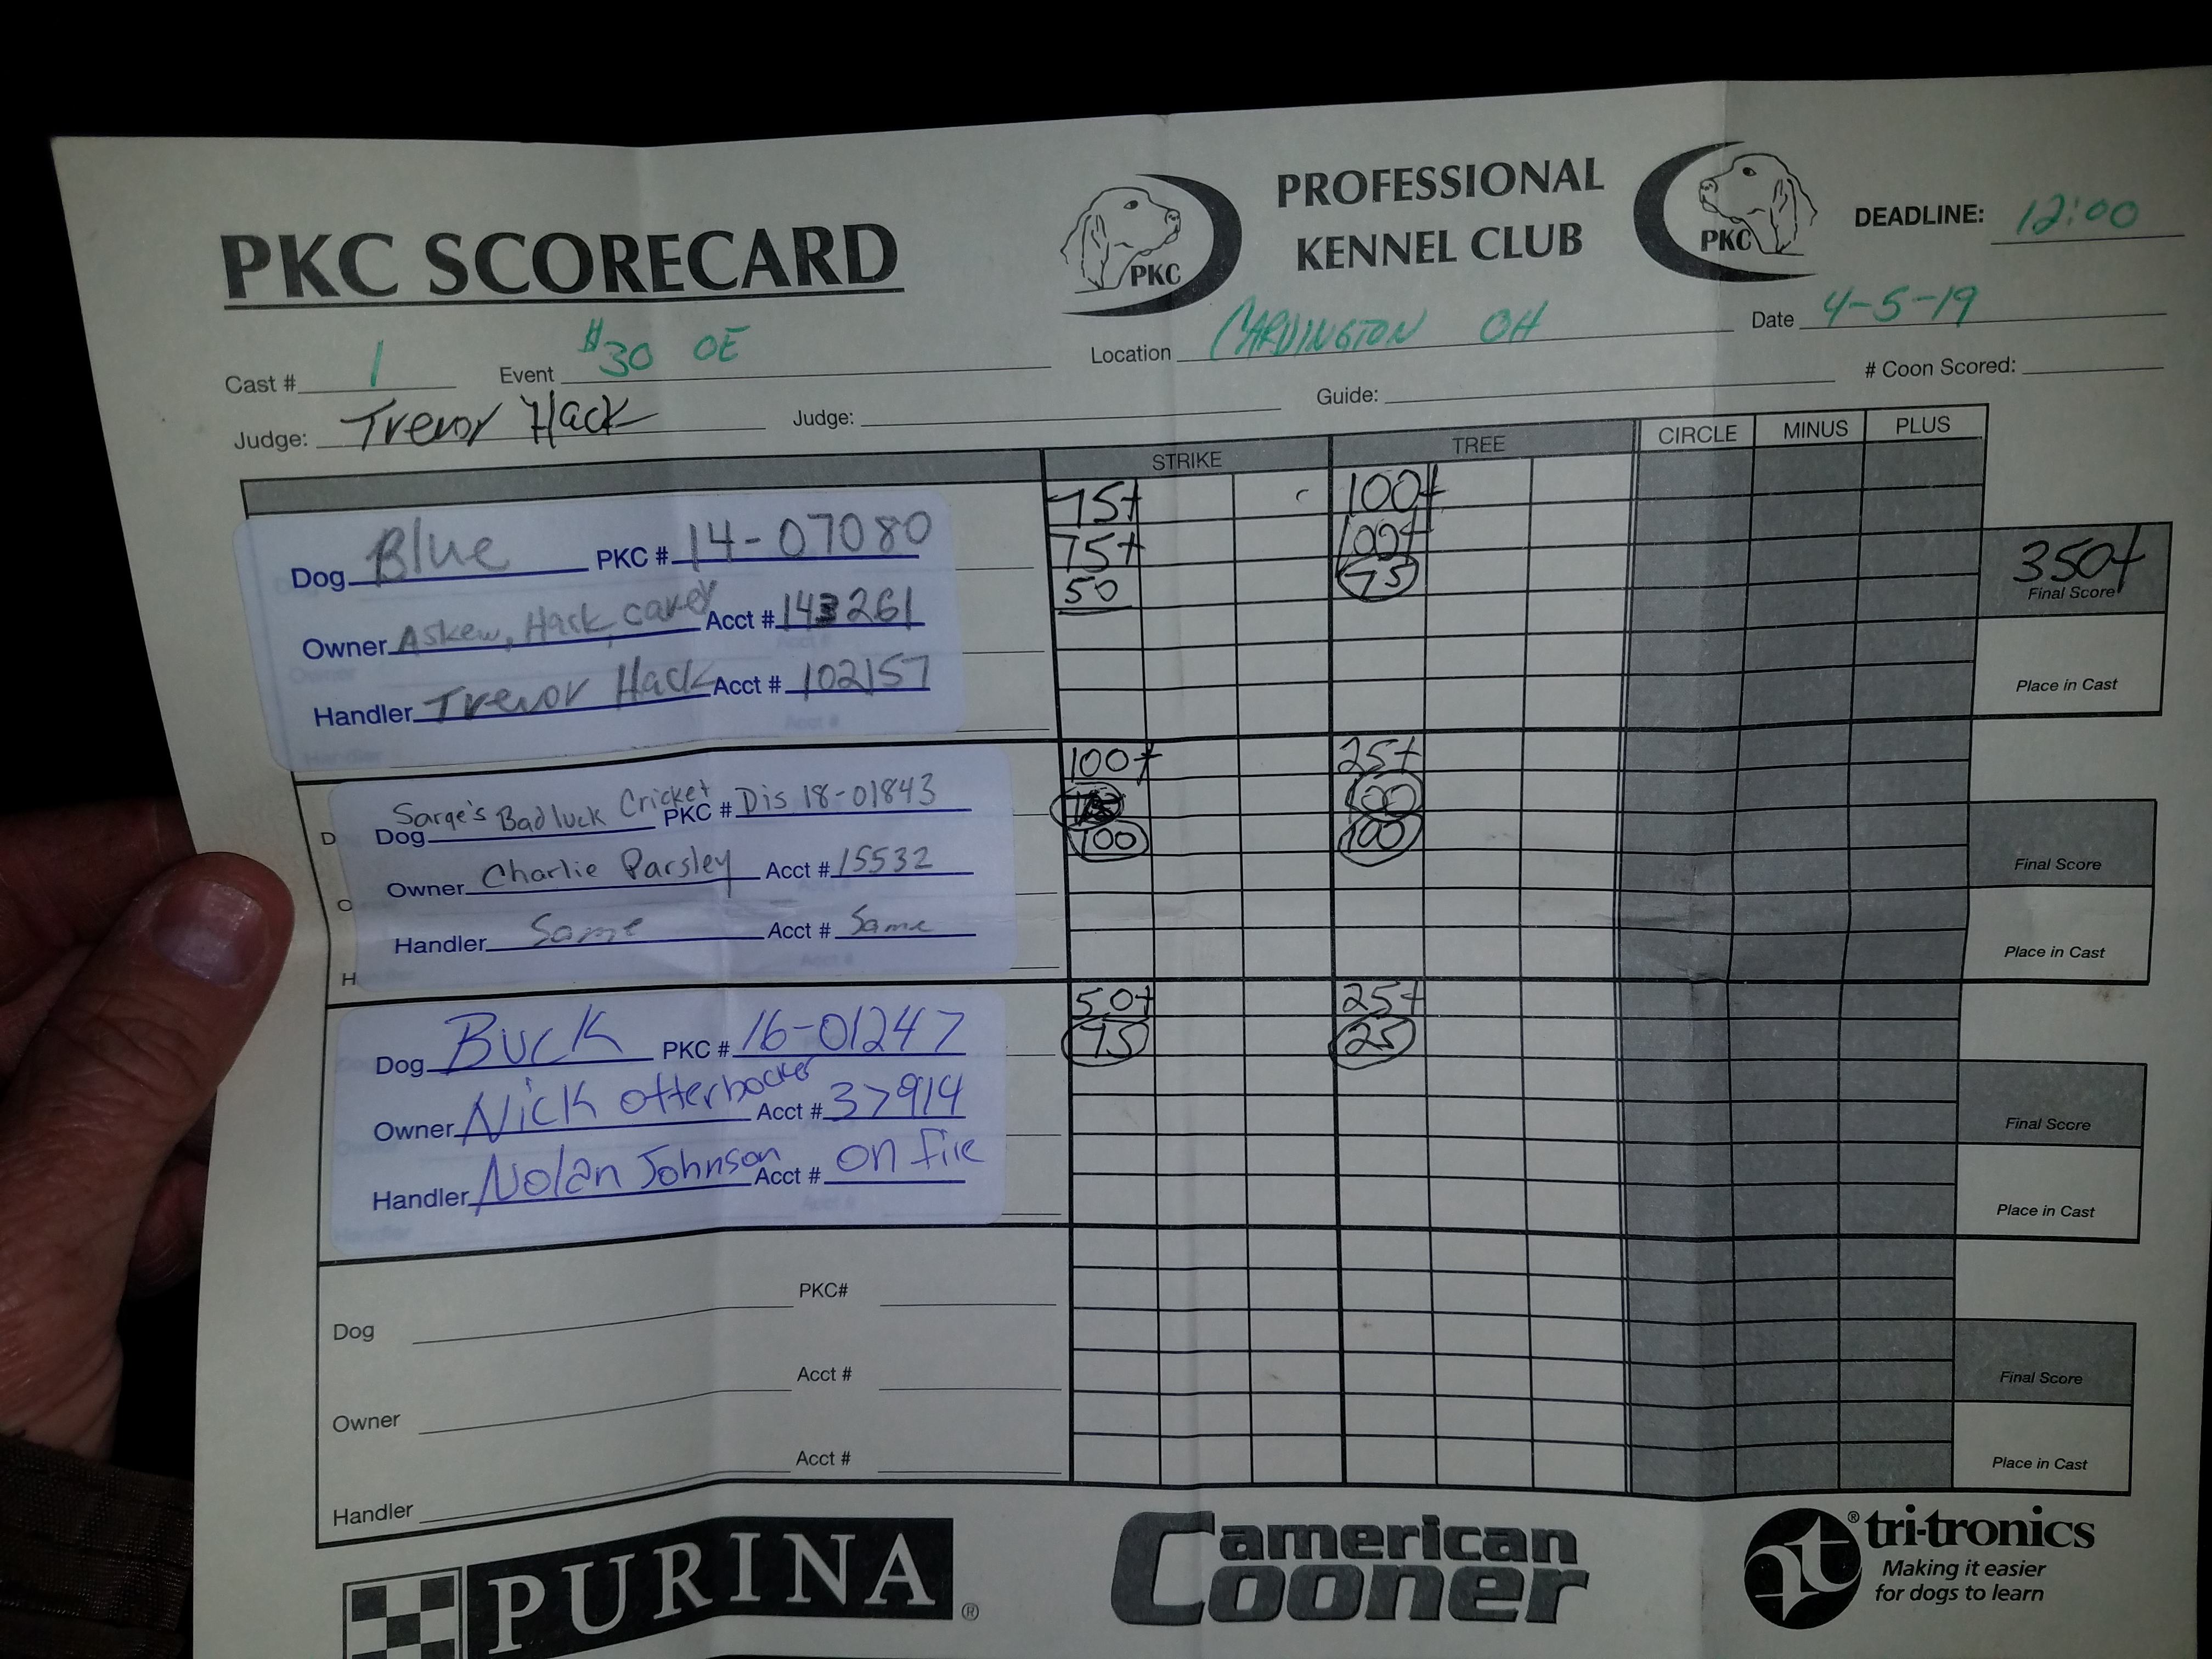 PROFESSIONAL
KENNEL CLUB
PKC
PKC
DEADLINE: 12:00
PKC SCORECARD
Cast # 1 Event $30 OE Location CARDINGTON OH Date 4-5-19
Judge: Trevor Hack Judge: Guide: # Coon Scored:
STRIKE TREE CIRCLE MINUS PLUS
75+ 100+
Dog Blue PKC # 14-07080 75+ 100+ 350+
50 75 Final Score
Owner Askew, Hack, Acct # 143261
Handler Trevor Hack Acct # 102157 Place in Cast
100+ 25+
Dog Sarge's Bad luck Cricket PKC # Dis 18-01843 100
100 100
Owner Charlie Parsley Acct # 15532 Final Score
Handler Same Acct # Same Place in Cast
D
O
H
50+ 25+
Dog Buck PKC # 16-01247 75 25
Owner Nick Otterbacker Acct # 37914 Final Score
Handler Nolan Johnson Acct # on file Place in Cast
PKC#
Dog
Acct # Final Score
Owner
Acct # Place in Cast
Handler
PURINA ®
american
Cooner
tri-tronics ®
Making it easier
for dogs to learn